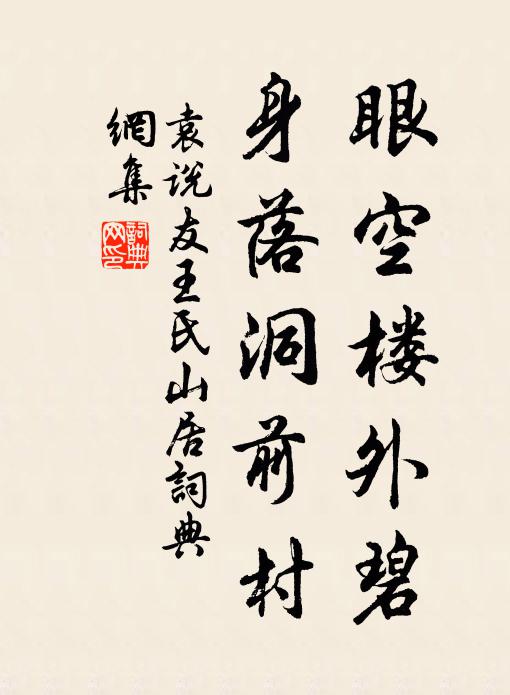 眼空楼外碧
身落洞前村
袁说友王民山居詞典
網集
詞典
网印